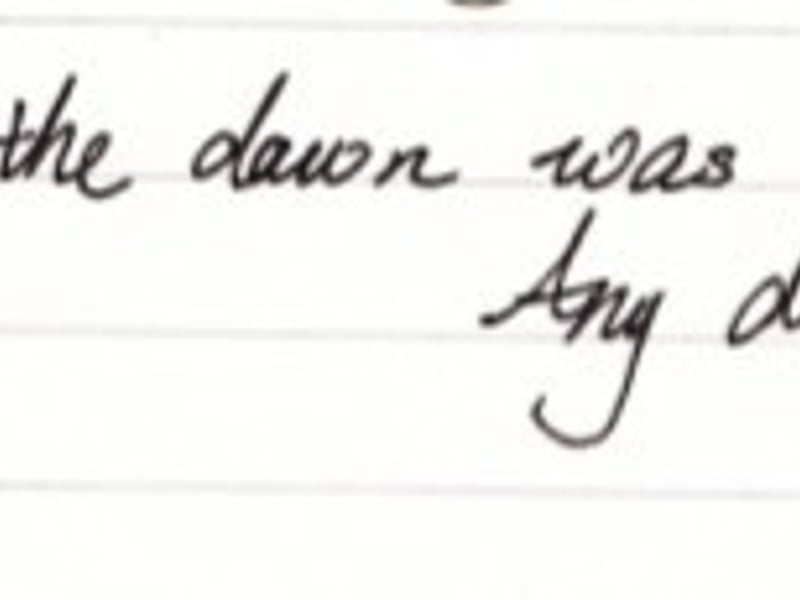 the dawn was
Any d